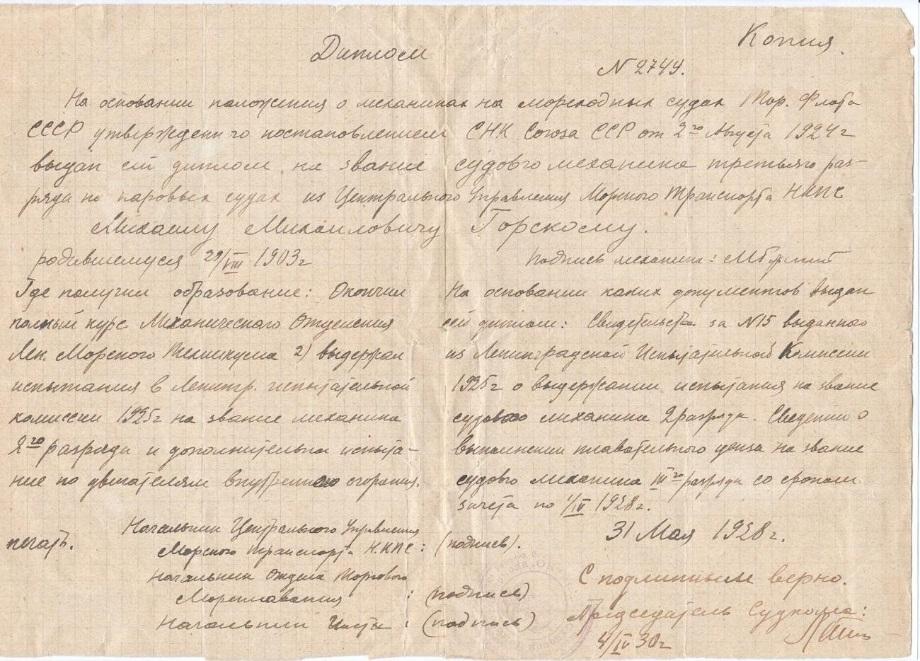 Копия.
Диплом
N 2744.
На основании положения о механиках на мореходных судах Тор. Флота
СССР утвержденного постановлением СНК Союза ССР от 2го Августа 1924г
выдан сей диплом на звание судового механика третьяго раз-
ряда на паровых судах из Центрального Управления Морского Транспорта НКПС
Михаилу Михаиловичу Горскому.
родившемуся 29/VIII 1903г
Подпись механика:
Где получил образование: Окончил
полный курс Механического Отделения
Лен. Морского Техникума 2) выдержал
испытания в Ленингр. испытательной
комиссии 1925г на звание механика
2го разряда и дополнительн испыта-
ние по двигателям внутреннего сгорания.
На основании каких документов выдан
сей диплом: Свидетельства за N15 выданного
из Ленинградской Испытательной Комиссии
1925г о выдержании испытания на звание
судового механика 2 разряда. Сведении о
выполнении плавательного ценза на звание
судового механика III го разряда со сроком
зачета по 1/IV 1928г.
31 Мая 1928г.
печать.
Начальник Центрального Управления
Морского Транспорта НКПС: (подпись).
Начальник Отдела Торгового
Мореплавания : (подпись)
Начальник : (подпись)
С подлинным верно.
Председатель Судкома:
4/IV 30г